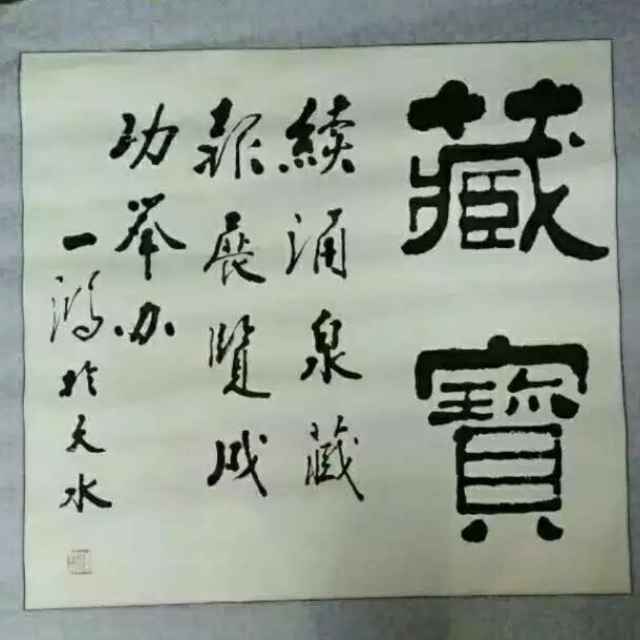 藏寶
續涌泉藏
報展覽成
功举办
一鴻於天水